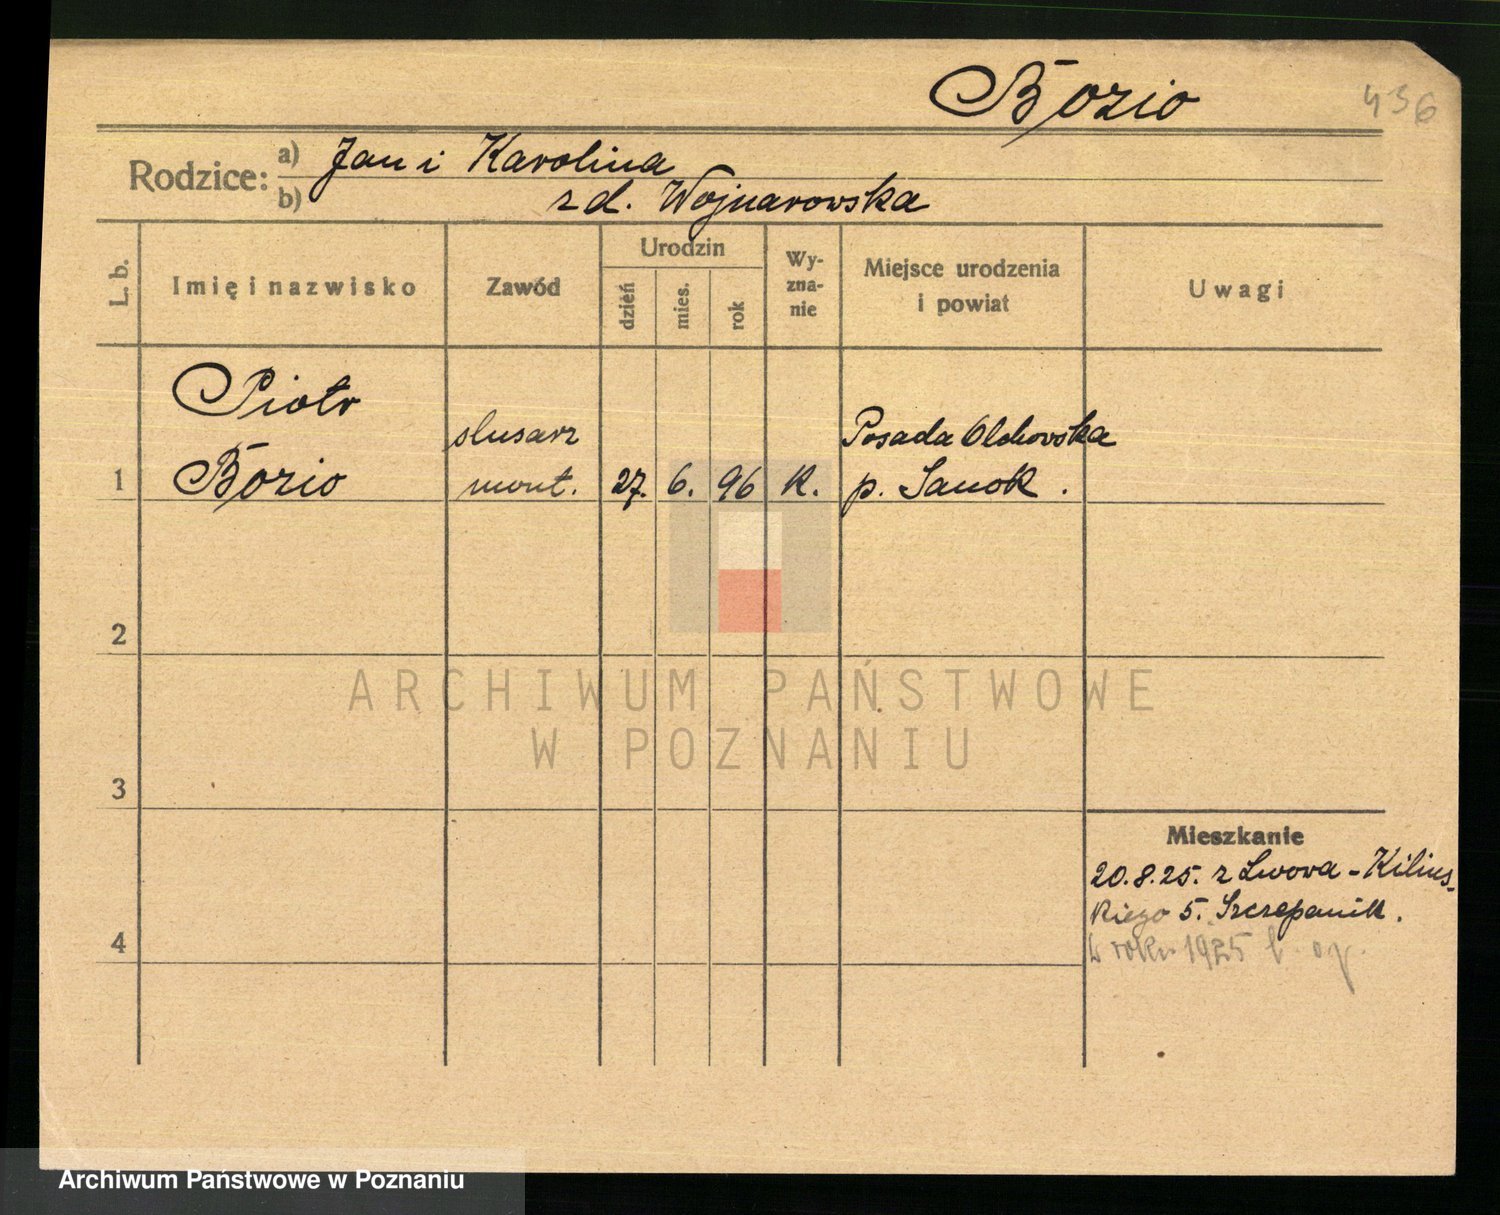 Bozio
436
Rodzice:
a) Jan i Karolina
b) z d. Wojnarowska
L. b.
Imię i nazwisko
Zawód
Urodzin
dzień
mies.
rok
Wy-
zna-
nie
Miejsce urodzenia
i powiat
Uwagi
Piotr
slusarz
Posada Olchowska
1 Bozio mont. 27. 6. 96 K. p. Sanok .
2
ARCHIWUM PAŃSTWOWE
W POZNANIU
3
Mieszkanie
20.8.25. z Lwowa - Kilińs-
kiego 5. Szczepanik.
4
W roku 1925 l.
Archiwum Państwowe w Poznaniu